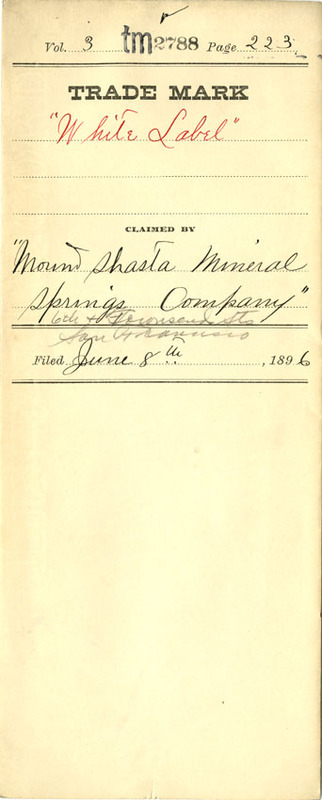 Vol. 3 tm2788 Page 223
TRADE MARK
"White Label"
CLAIMED BY
"Mound Shasta Mineral
Springs Company"
6th & Townsend Sts
San Francisco
Filed June 8th, 1896